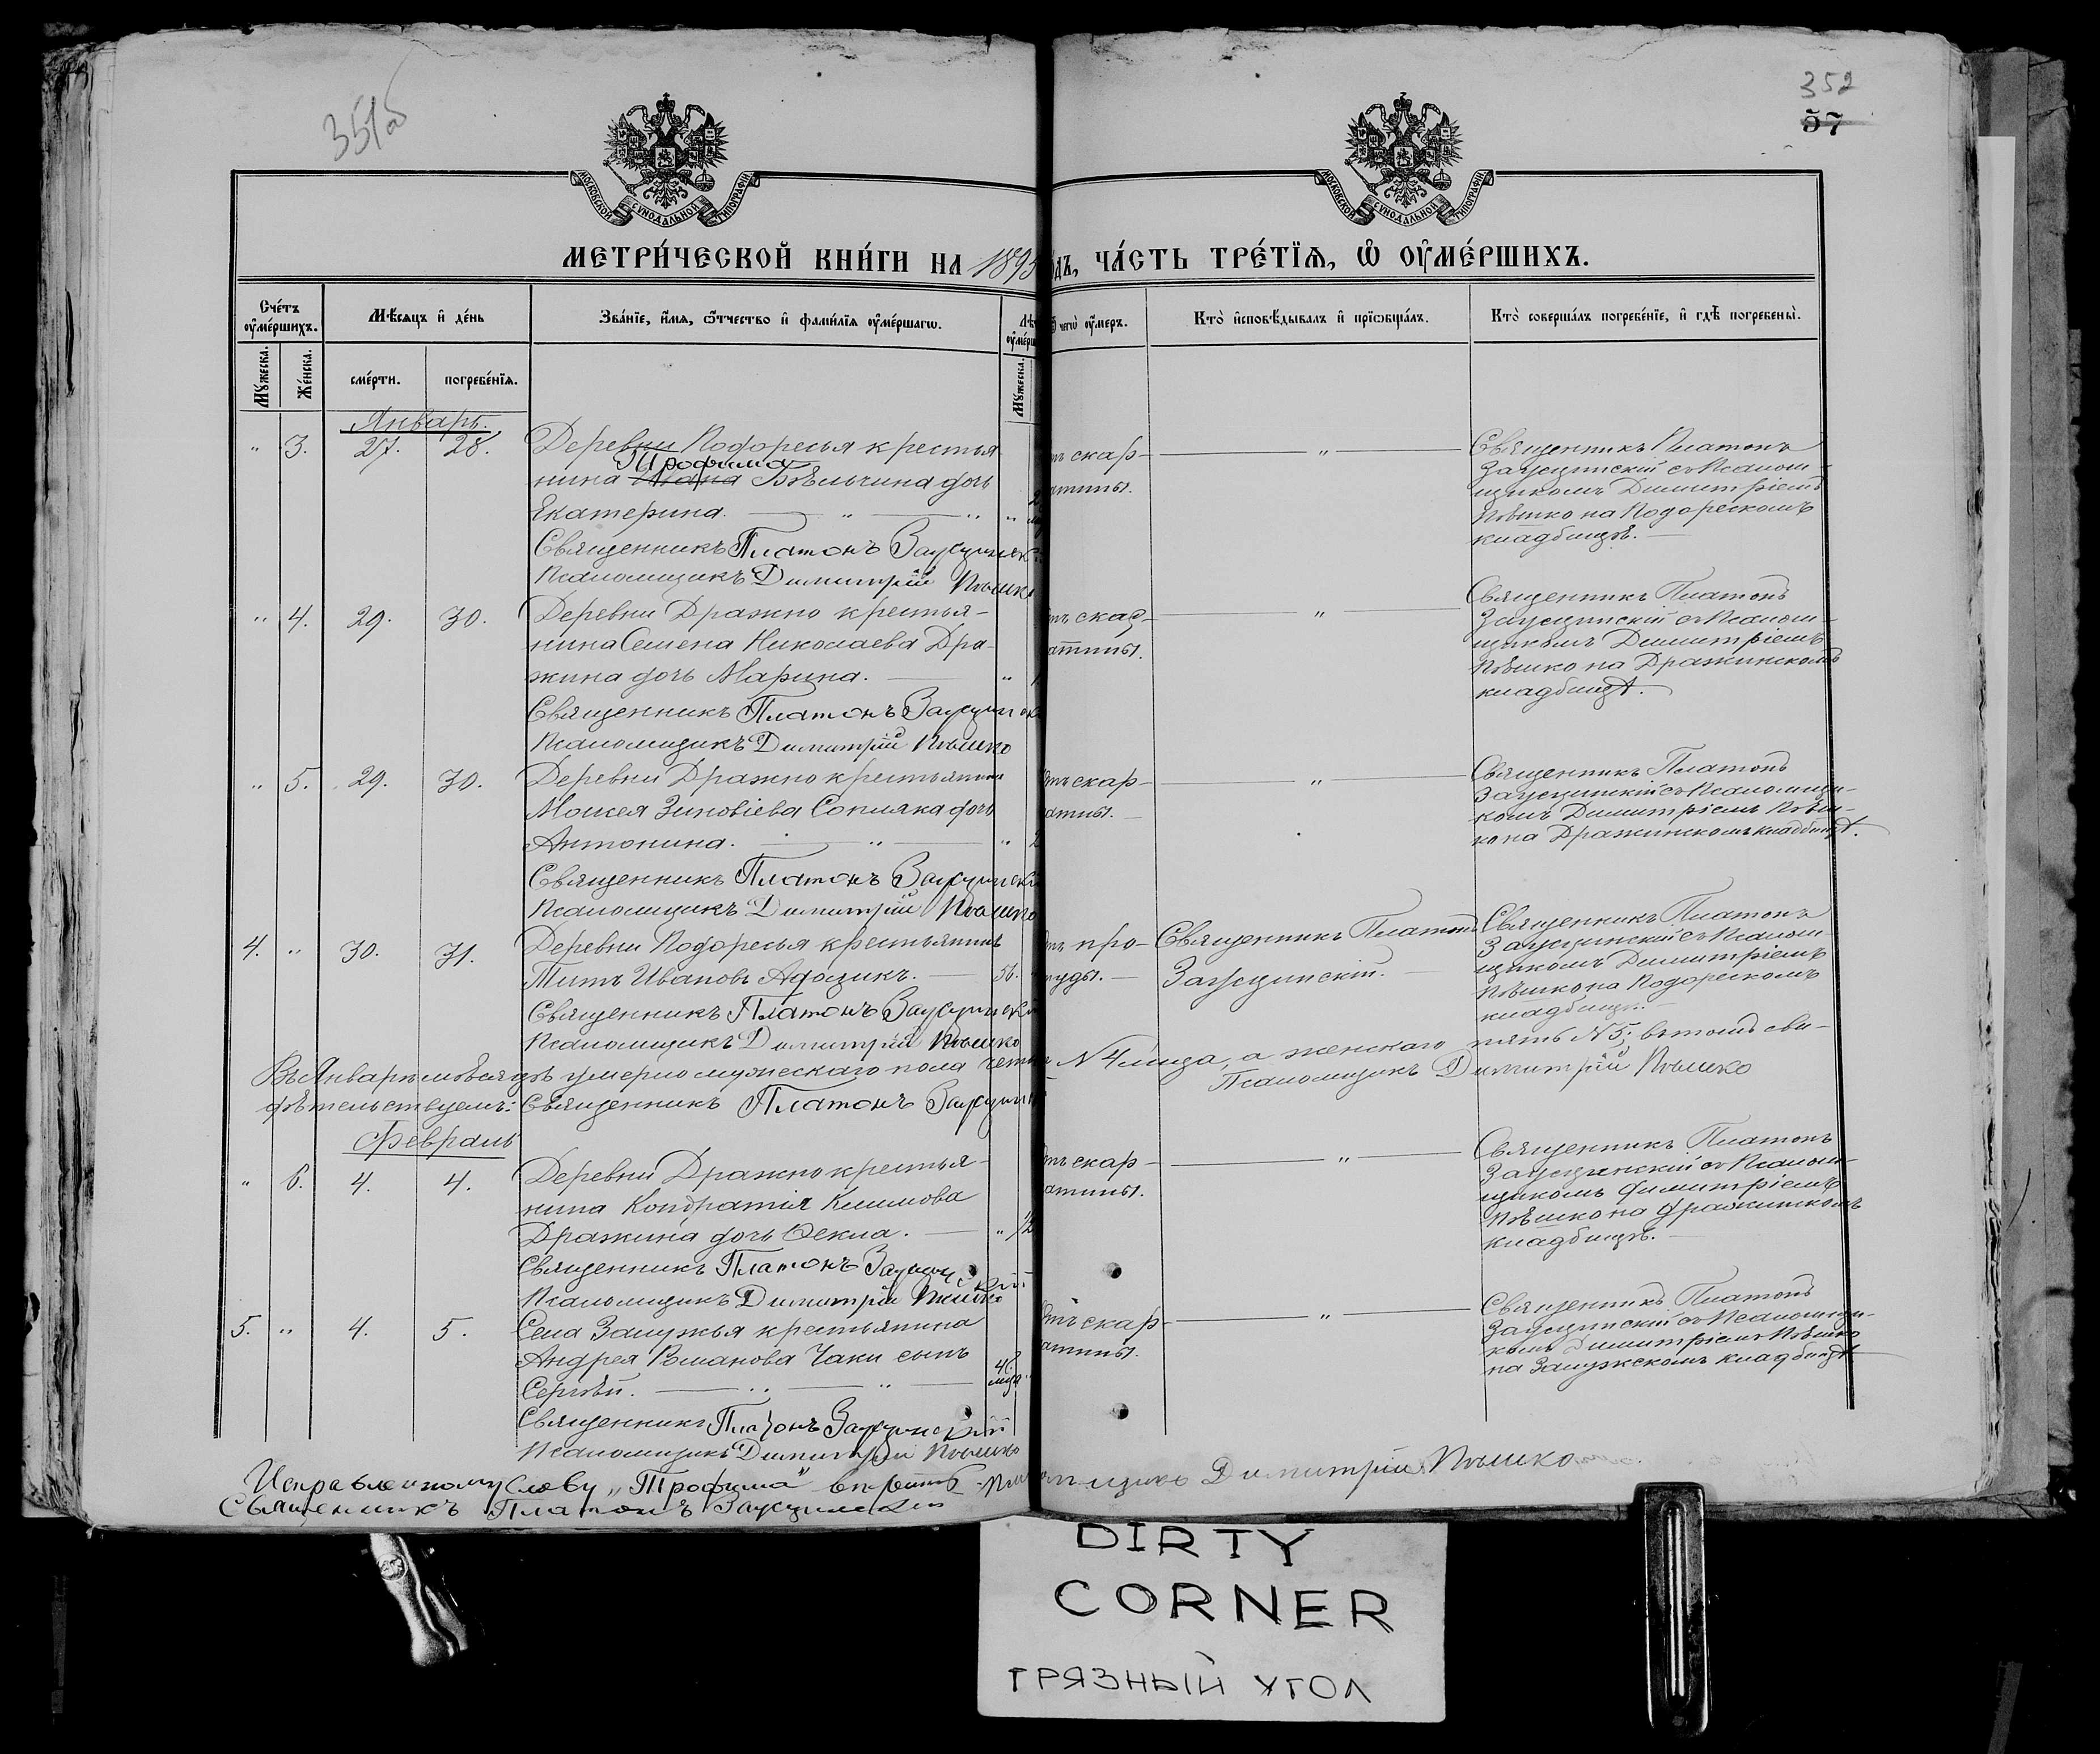 351об
352
57
МОСКОВСКОЙ СУНОДАЛЬНОЙ ТИПОГРАФІИ
МОСКОВСКОЙ СУНОДАЛЬНОЙ ТИПОГРАФІИ
МЕТРИ́ЧЕСКОЙ КНИ́ГИ НА 1893
дъ, ЧА́СТЬ ТРЕ́ТЇѦ, Ѡ҆ ОУ҆МЕ́РШИХЪ.
Сче́тъ оу҆ме́ршихъ.
Мѣ́сѧцъ и҆ де́нь
Зва́нїе, и҆́мѧ, ѻ҆́тчество и҆ фами́лїѧ оу҆ме́ршагѡ.
Лѣ
оу҆ме́рш
чегѡ̀ оу҆́меръ.
Кто̀ и҆сповѣ́дывалъ и҆ прїѡбща́лъ.
Кто̀ соверша́лъ погребе́нїе, и҆ гдѣ̀ погребены̀.
Мꙋ́жеска.
Же́нска.
сме́рти.
погребе́нїѧ.
Мꙋ́жеска.
Январь.
" 3. 27. 28. Деревни Подоресья крестья
Трофима
нина Ивана Бѣльчина дочь
Екатерина. — " — "
Священникъ Платонъ Заусцинск
Псаломщикъ Димитрій Пѣшко
тъ скар-
атины.
"
Священникъ Платонъ
Заусцинскій съ Псалом-
щикомъ Димитріемъ
Пѣшко на Подоресскомъ
кладбищѣ.
" 4. 29. 30. Деревни Дражно крестья-
нина Семена Николаева Дра-
жина дочь Марина. — "
Священникъ Платонъ Заусцинск
Псаломщикъ Димитрій Пѣшко
тъ скар-
атины.
"
Священникъ Платонъ
Заусцинскій съ Псалом-
щикомъ Димитріемъ
Пѣшко на Дражинскомъ
кладбищѣ.
" 5. 29. 30. Деревни Дражно крестьянина
Моисея Зиновіева Сопляка дочь
Антонина. — " — " 2
Священникъ Платонъ Заусцинскі
Псаломщикъ Димитрій Пѣшко
тъ скар-
атины.
"
Священникъ Платонъ
Заусцинскій съ Псаломщи-
комъ Димитріемъ Пѣш-
ко на Дражинскомъ кладбищѣ.
4. " 30. 31. Деревни Подоресья крестьянинъ
Титъ Ивановъ — 56.
Священникъ Платонъ Заусцинскій
Псаломщикъ Димитрій Пѣшко
тъ про-
студы.
Священникъ Платонъ
Заусцинскій.
Священникъ Платонъ
Заусцинскій съ Псалом-
щикомъ Димитріемъ
Пѣшко на Подоресскомъ
кладбищѣ.
Въ Январѣ мѣсяцѣ умерло мужескаго пола четы № 4 лица, а женскаго пять № 5; въ томъ сви-
дѣтельствуемъ: Священникъ Платонъ Заусцин Псаломщикъ Димитрій Пѣшко
Февраль
" 6. 4. 4. Деревни Дражно крестья-
нина Кондратія Климова
Дражина дочь Ѳекла. — " 1/2
Священникъ Платонъ Заусцинскій
Псаломщикъ Димитрій Пѣшко
тъ скар-
атины.
"
Священникъ Платонъ
Заусцинскій съ Псалом-
щикомъ Димитріемъ
Пѣшко на Дражинскомъ
кладбищѣ.
5. " 4. 5. Села Залужья крестьянина
Андрея Романова Чаки сынъ
Сергѣй. — " — "
Священникъ Платонъ Заусцинскій
Псаломщикъ Димитрій Пѣшко
тъ скар-
атины.
"
Священникъ Платонъ
Заусцинскій съ Псаломщи-
комъ Димитріемъ Пѣшко
на Залужскомъ кладбищѣ
Исправленному слову „Трофима" вѣрить Псаломщикъ Димитрій Пѣшко
Священникъ Платонъ Заусцинскій
DIRTY
CORNER
ГРЯЗНЫЙ УГОЛ